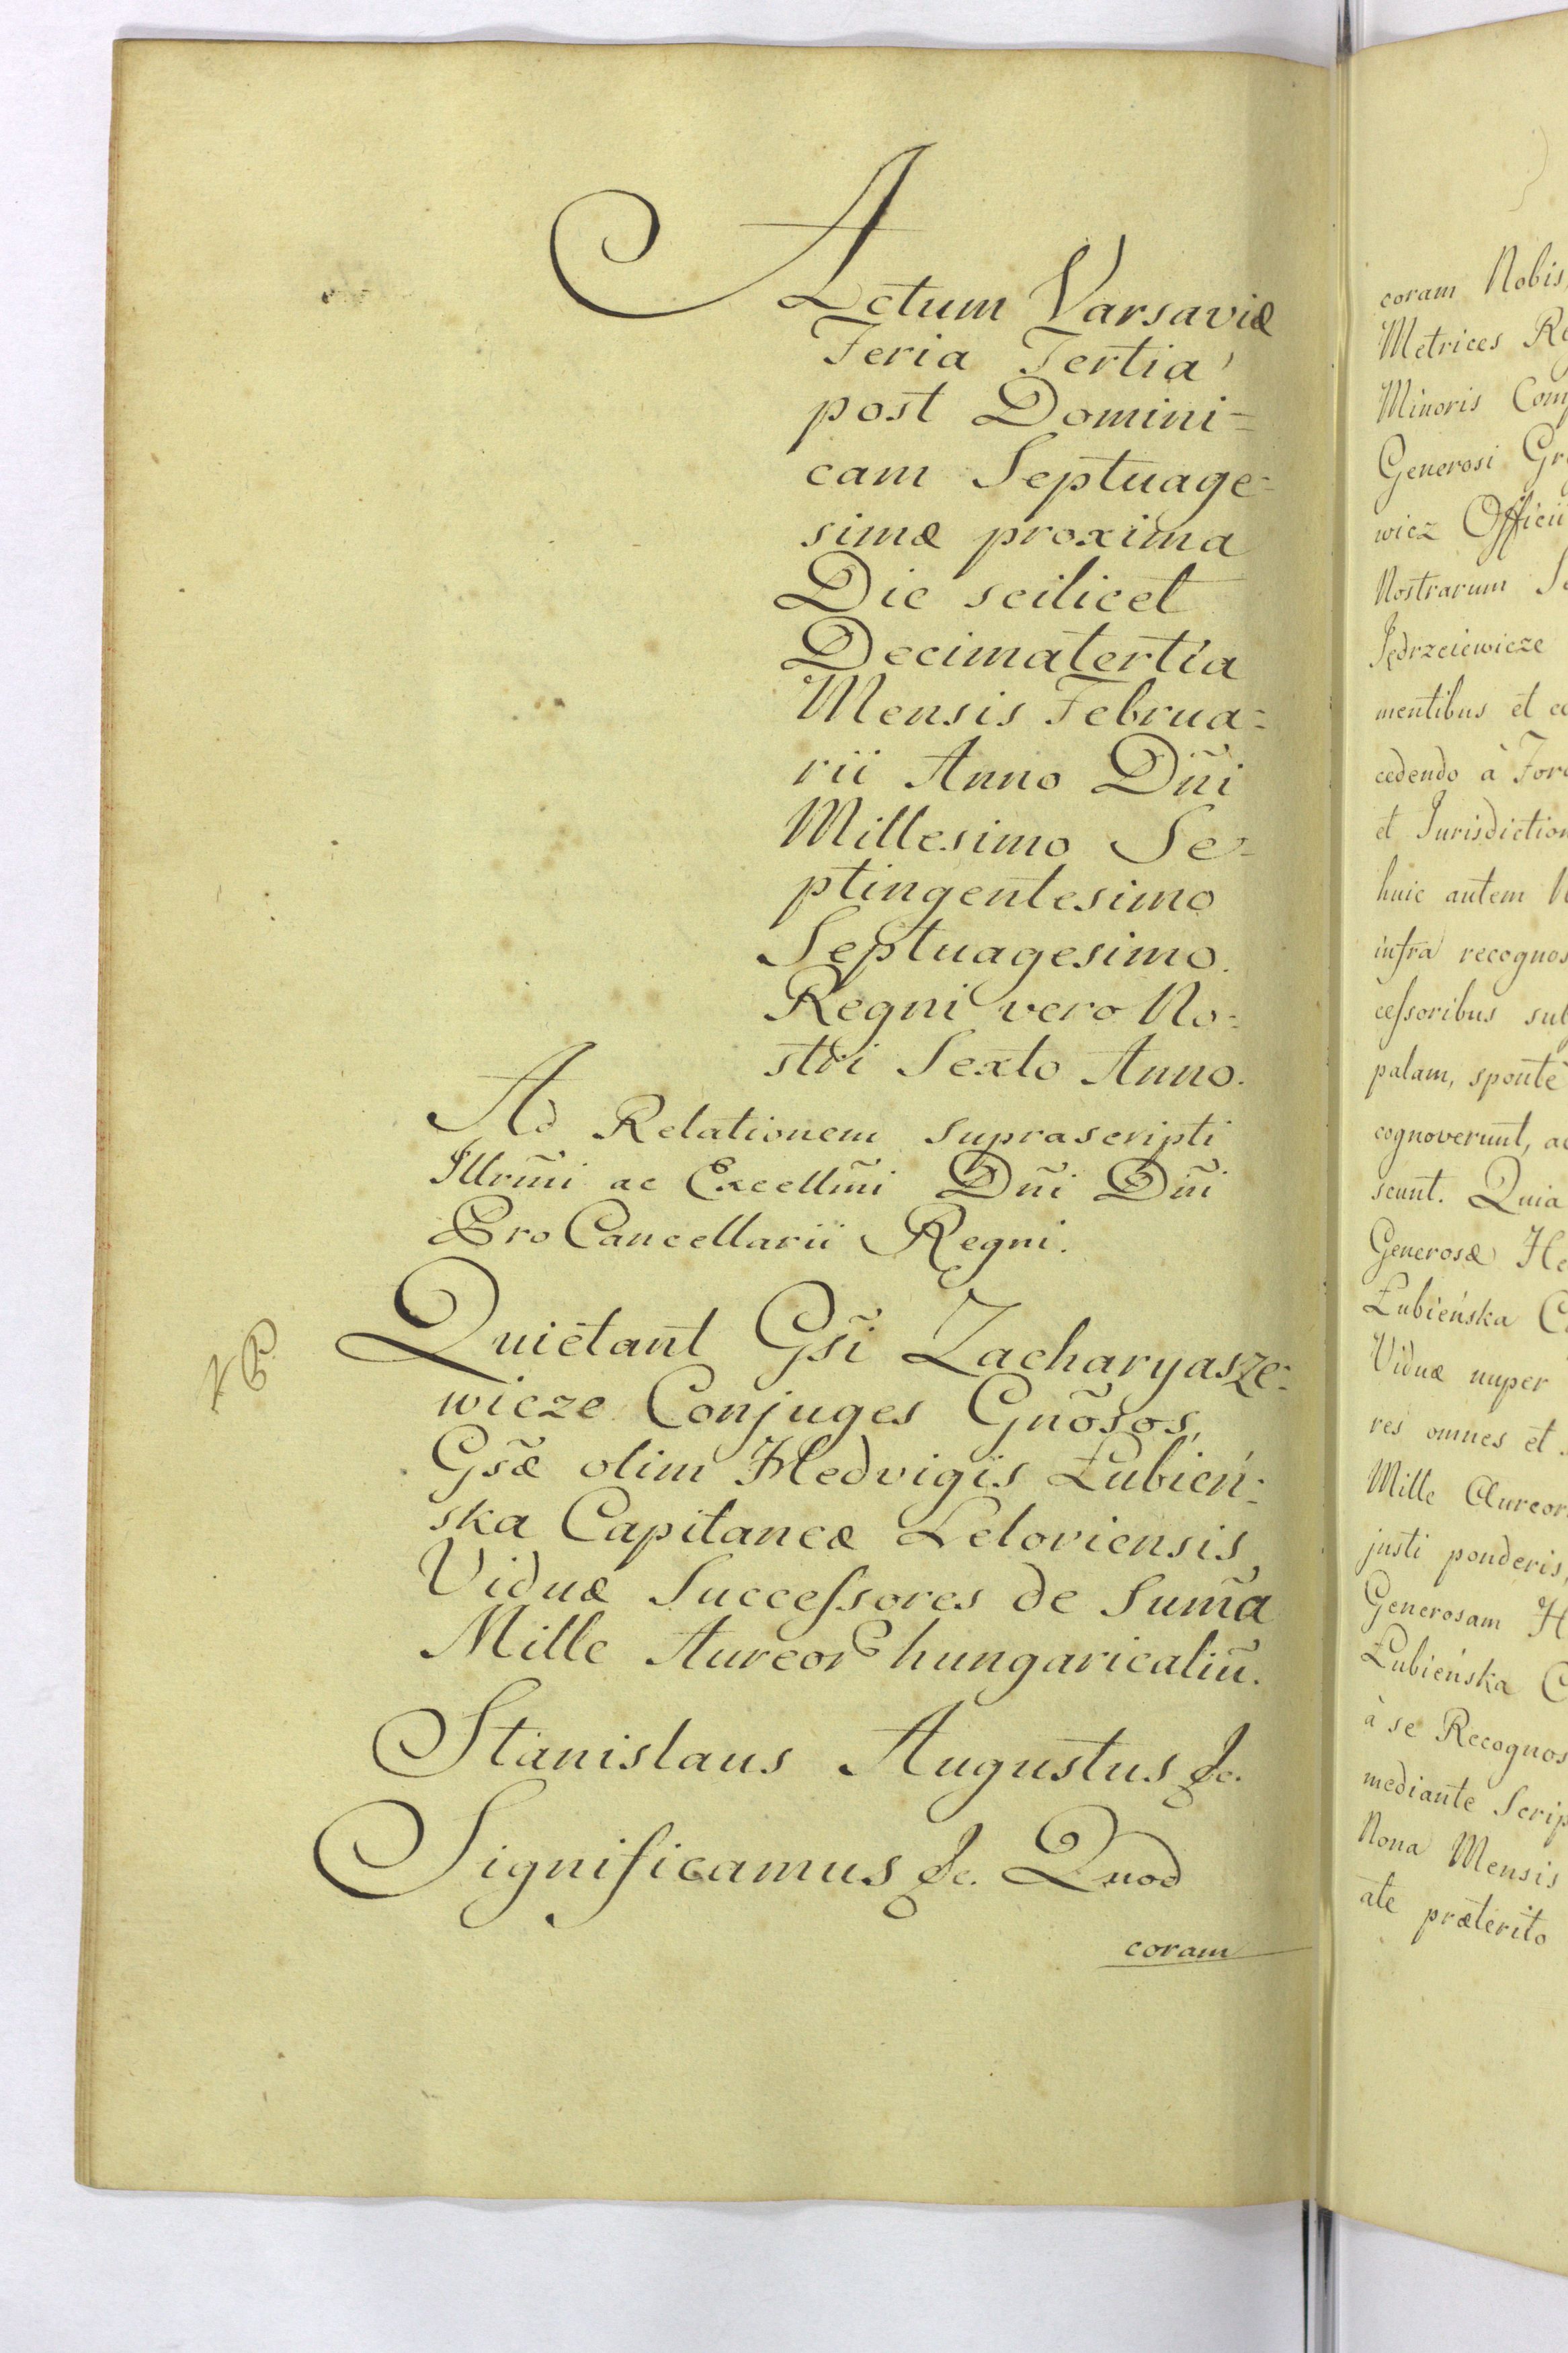 Actum Varsaviæ
Feria Tertia
post Domini=
cam Septuage=
simæ proxima
Die scilicet
Decimatertia
Mensis Februa=
rii Anno Dñi
Millesimo Se-
ptingentesimo
Septuagesimo.
Regni vero No=
stri Sexto Anno.
Ad Relationem supra scripti
Illrm̃i ac Excellm̃i Dñi Dñi
Pro Cancellarii Regni.
Quietant Gsĩ Zacharyasze=
wicze Conjuges Gnõsos,
Gsæ̃ olim Hedvigis Łubień=
ska Capitaneæ Leloviensis
Viduæ Successores de Sum̃a
Mille Aureor hungaricaliũ.
Stanislaus Augustus &c.
Significamus &c. Quod
coram
coram Nobis,
Metrices
Minoris
Generosi
wicz Officii
Nostrarum
Jędrzeiewicze
mentibus et
cedendo à
et
huic autem
infra
cessoribus
palam, sponte
cognoverunt,
scunt. Quia
Generosæ
Łubieńska
Viduæ nuper
res omnes et
Mille
justi ponderis,
Generosam
Łubieńska
à se
mediante
Nona Mensis
ate præterito